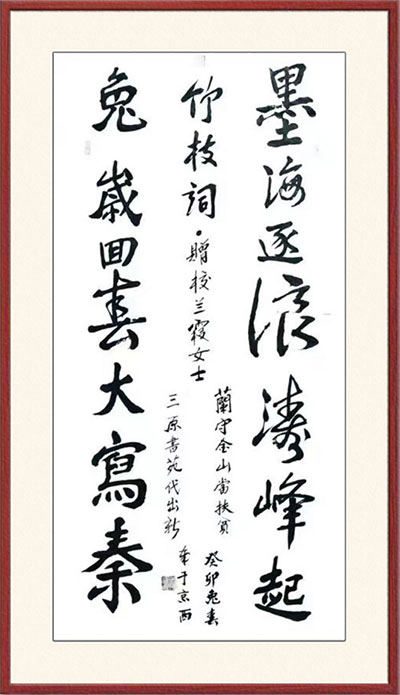 墨海逐浪濤峰起
竹枝詞·贈校兰霞女士
蘭守金山當扶貧
三原書苑代出新
癸卯兔春
于京西
兔歲回春大寫秦